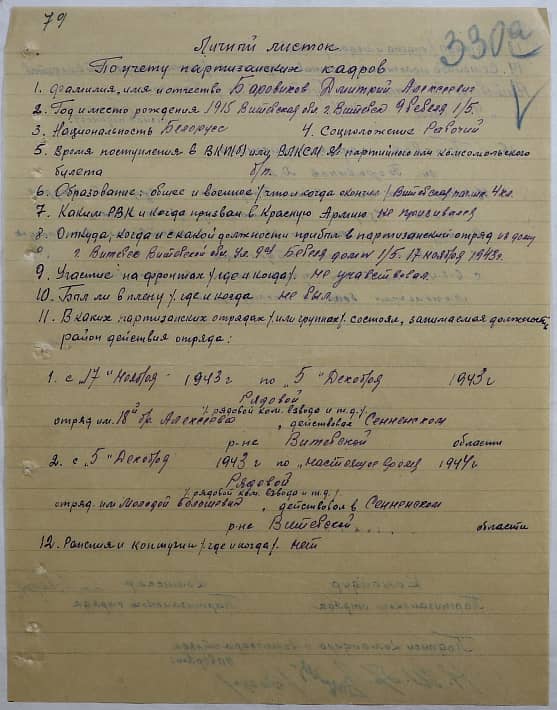 79
330а
Личный листок
По учету партизанских кадров
1. Фамилия, имя и отчество Боровиков Дмитрий Алексеевич
2. Год и место рождения 1915 Витебская обл. г. Витебск 1/5.
3. Национальность Белорусс 4. Соцположение Рабочий
5. Время поступления в ВКП(б) или ВЛКСМ № партийного или комсомольского
билета б/п.
6. Образование: общее и военное /что и когда окончил/ Витебская 4 кл.
7. Каким РВК и когда призван в Красную Армию не призывался
8. Откуда, когда и с какой должности прибыл в партизанский отряд из дому
г. Витебск Витебской обл. ул. дом № 1/5. 17 ноября 1943г.
9. Участие на фронтах /где и когда/. не участвовал
10. Был ли в плену /. где и когда не был
11. В каких партизанских отрядах /или группах/. состоял, занимаемая должность,
район действия отряда:
1. с „17" Ноября 1943г по „5" Декабря 1943г
Рядовой
/. рядовой ком. взвода и т.д./
отряд им. 18й бр. Алексеева, действовал Сенненском
р-не Витебской области
2. с „5" Декабря 1943г по „настоящее время 1944г
Рядовой
/. рядовой ком. взвода и т.д./
отряд. им Молодой большевик, действовал в Сенненском
р-не Витебской области
12. Ранения и контузии /где и когда/. нет